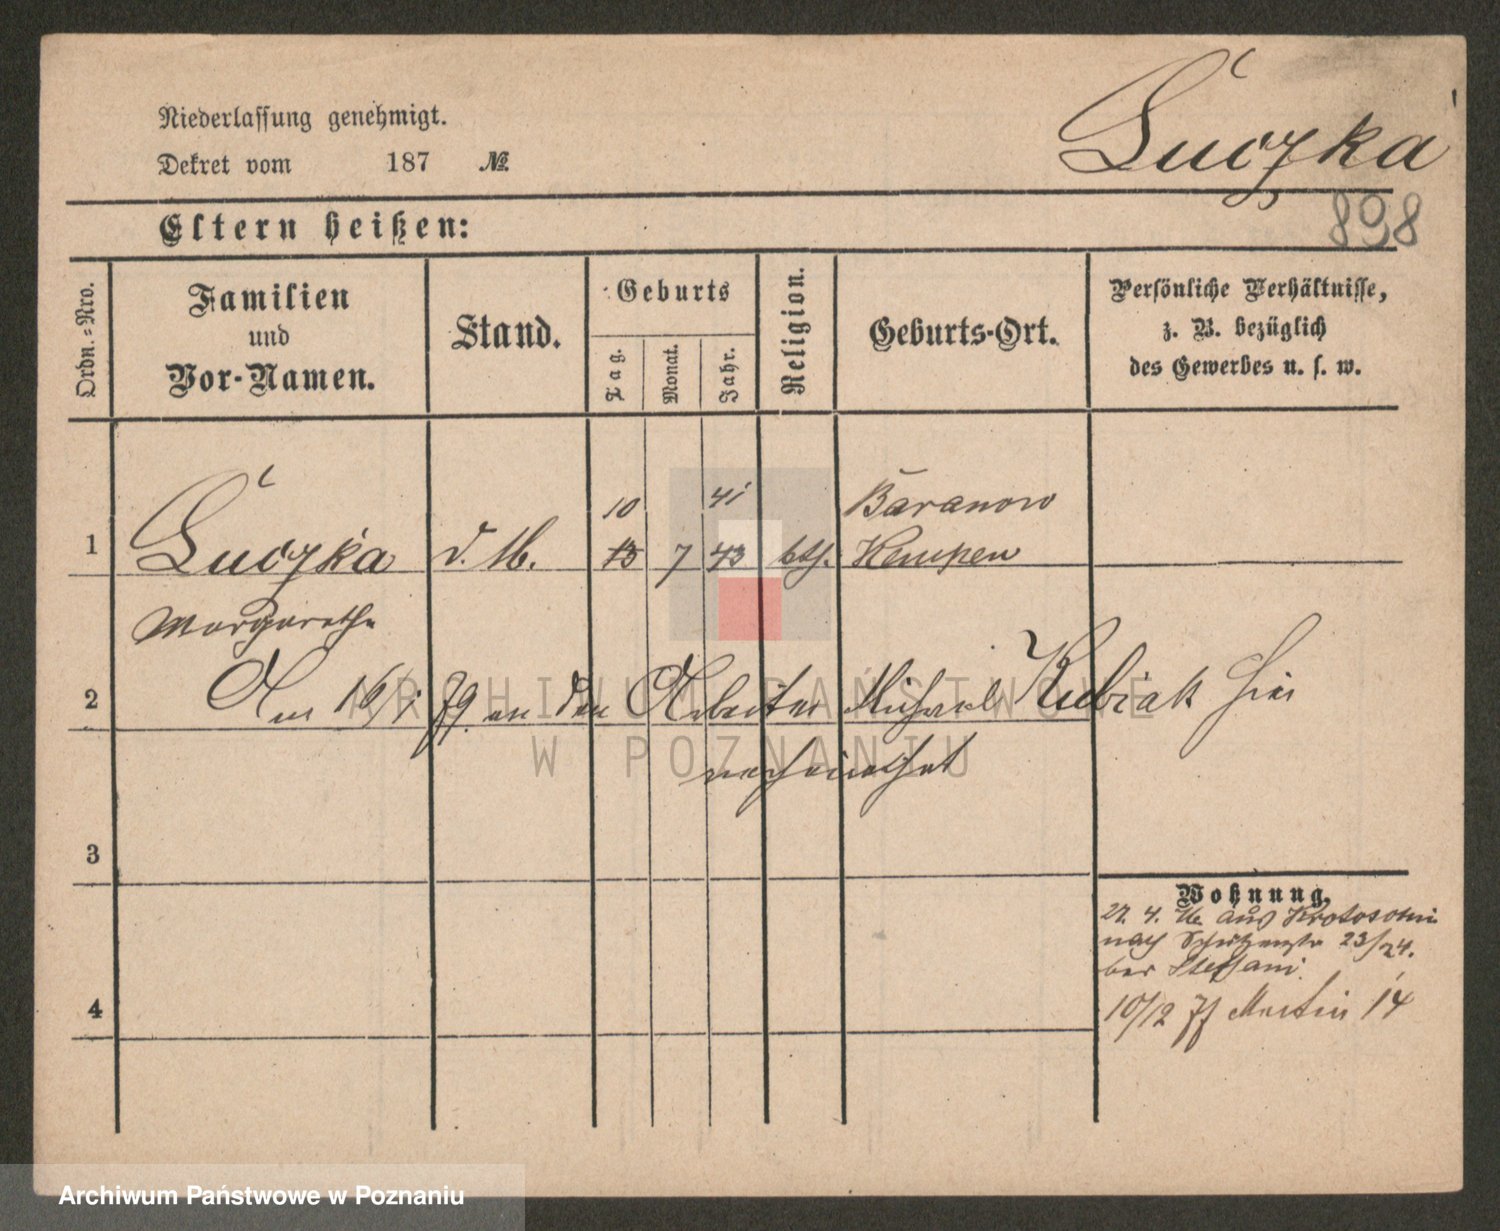 Niederlassung genehmigt.
Dekret vom 187 №
Luczka
898
Eltern heißen:
Ordn.-Nro.
Familien
und
Vor-Namen.
Stand.
Geburts
Tag.
Monat.
Jahr.
Religion.
Geburts-Ort.
Persönliche Verhältnisse,
z. B. bezüglich
des Gewerbes u. s. w.
10 41 Baranow
1 Luczka d. M. 13 7 43 kth. Kempen
Margarethe
2 Am 16/1 79 an den Arbeiter Michael Kubiak hier
verheirathet
3
Wohnung.
27. 4. 76 aus Krotoschin
nach Schützenstr 23/24.
bei Stefani.
10/12 77 Martin 14
4
ARCHIWUM PAŃSTWOWE
W POZNANIU
Archiwum Państwowe w Poznaniu